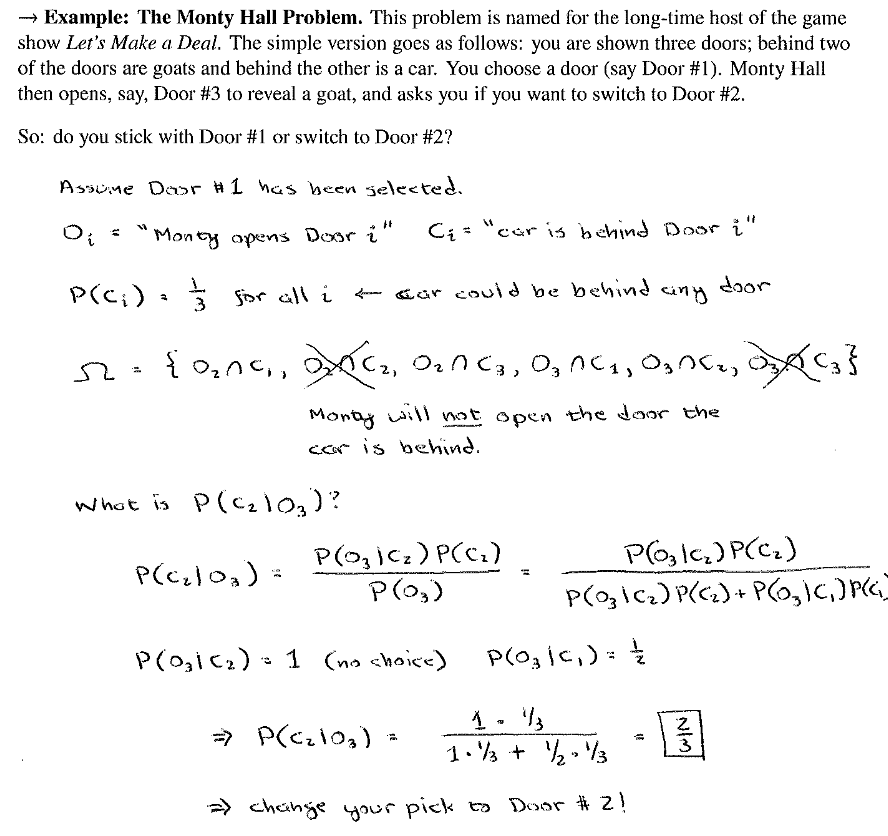 → Example: The Monty Hall Problem. This problem is named for the long-time host of the game
show Let's Make a Deal. The simple version goes as follows: you are shown three doors; behind two
of the doors are goats and behind the other is a car. You choose a door (say Door #1). Monty Hall
then opens, say, Door #3 to reveal a goat, and asks you if you want to switch to Door #2.
So: do you stick with Door #1 or switch to Door #2?
Assume Door #1 has been selected.
O_i = "Monty opens Door i" C_i = "car is behind Door i"
P(C_i) = 1/3 for all i ← car could be behind any door
Ω = { O₂∩C₁, O₂∩C₂, O₂∩C₃, O₃∩C₁, O₃∩C₂, O₃∩C₃}
Monty will not open the door the
car is behind.
What is P(C₂|O₃)?
P(C₂|O₃) = P(O₃|C₂)P(C₂) / P(O₃) = P(O₃|C₂)P(C₂) / P(O₃|C₂)P(C₂) + P(O₃|C₁)P(C₁)
P(O₃|C₂) = 1 (no choice) P(O₃|C₁) = 1/2
⇒ P(C₂|O₃) = 1 · 1/3 / 1 · 1/3 + 1/2 · 1/3 = 2/3
⇒ change your pick to Door #2!